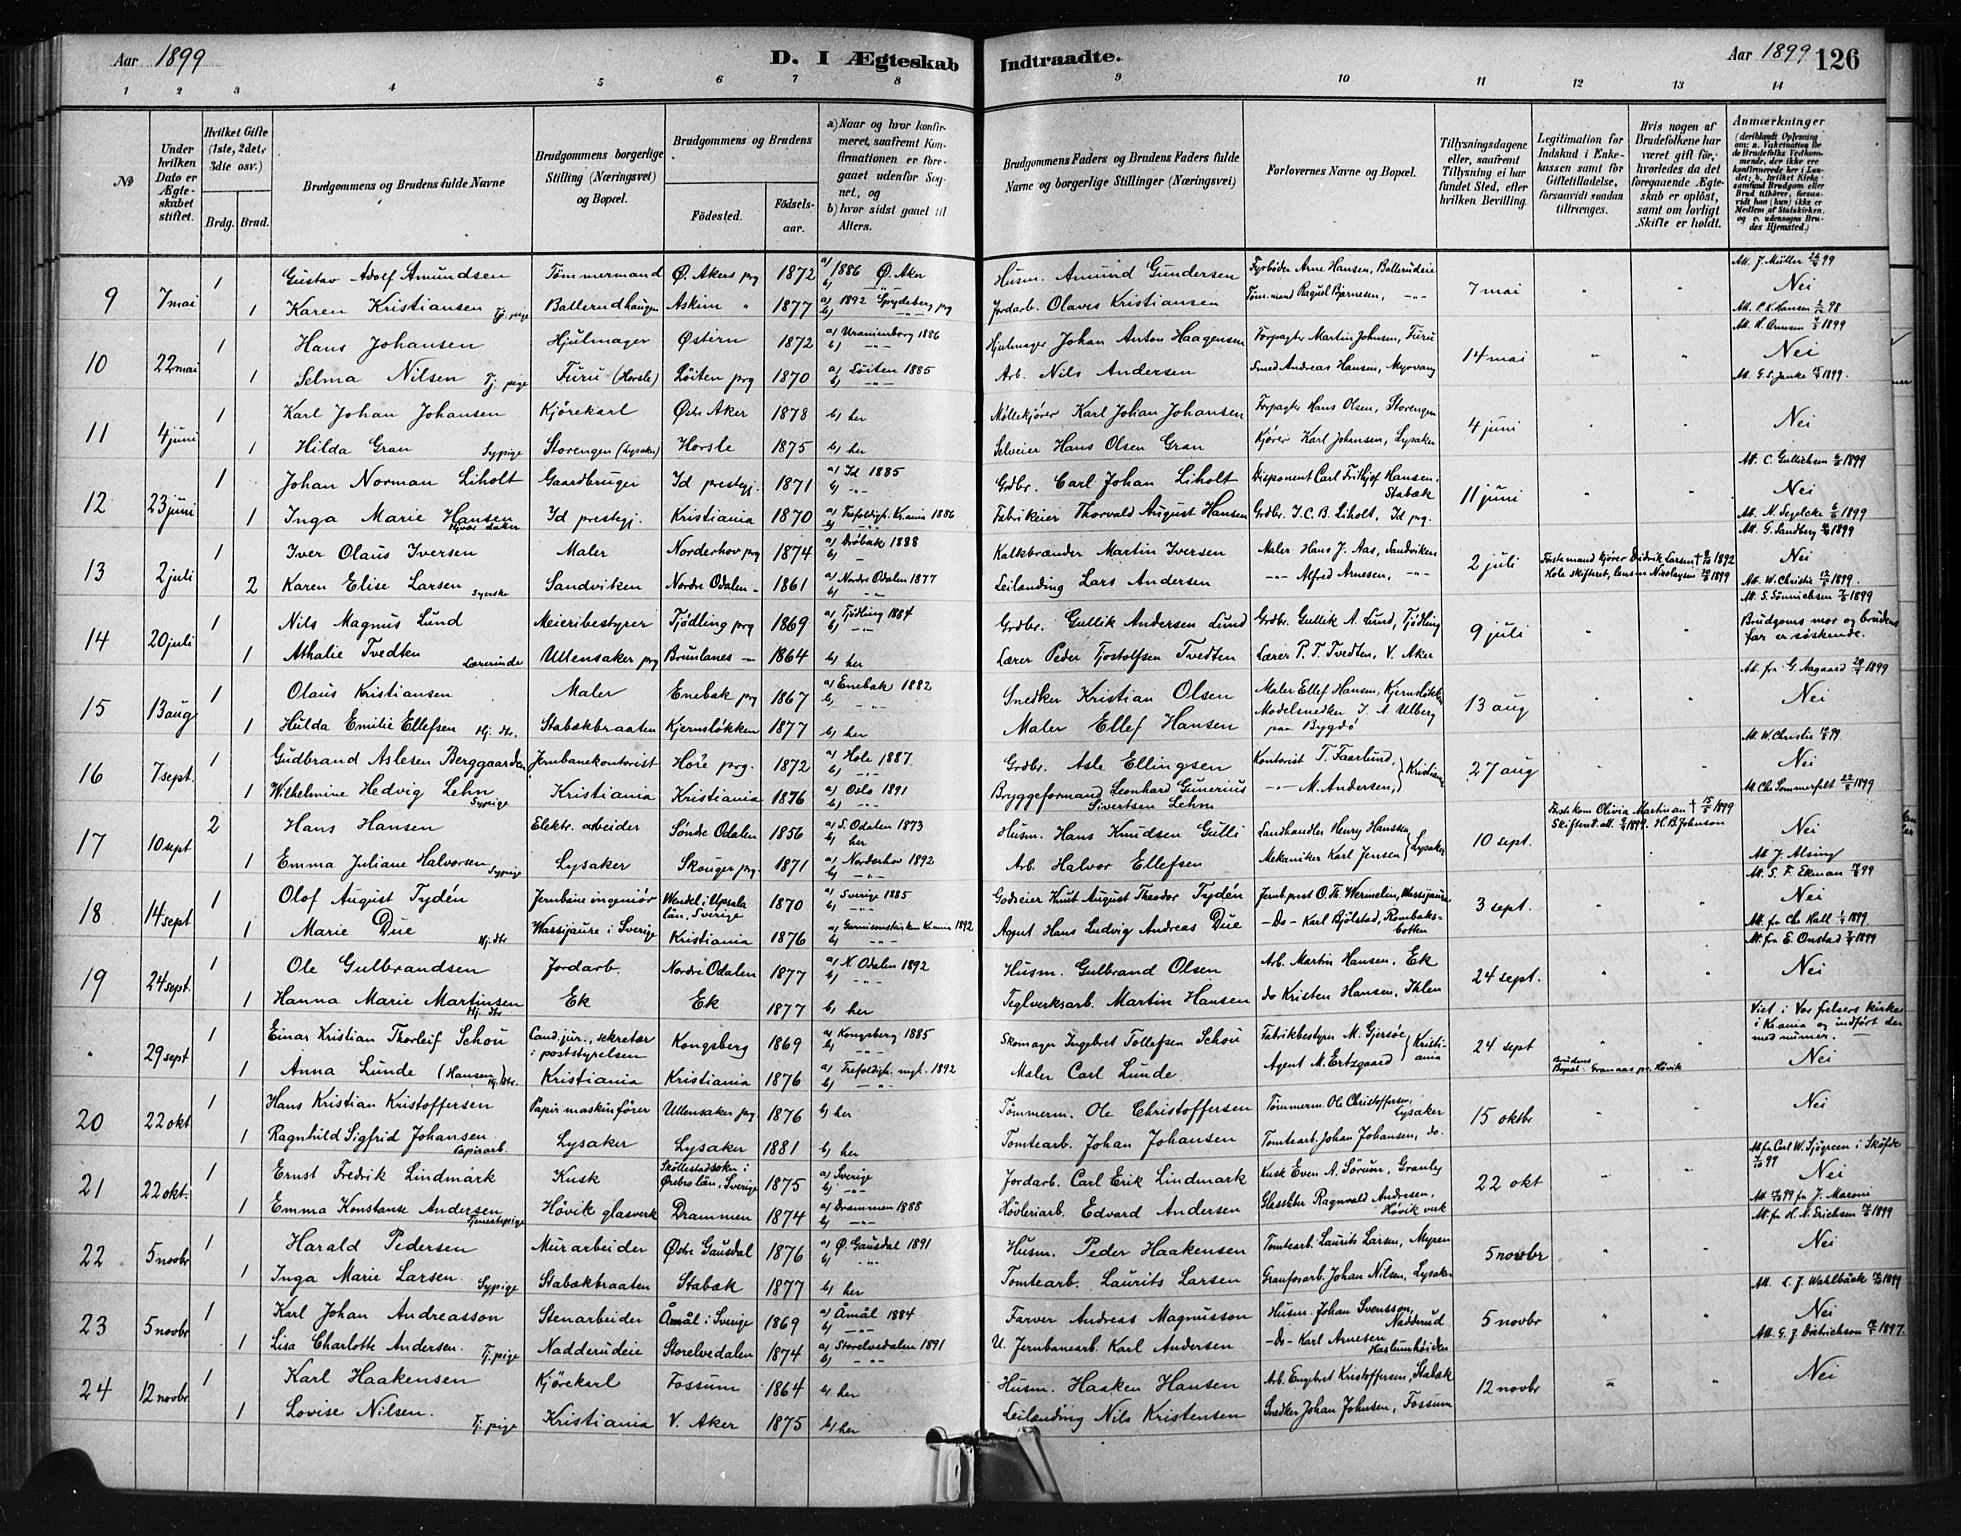 Aar 1899
D. I Ægteskab Indtraadte.
Aar 1899 126
1 2 3 4 5 6 7 8 9 10 11 12 13 14
No
Under hvilken Dato er Ægteskabet stiftet.
Hvilket Gifte (1ste, 2det, 3die osv.)
Brdg. Brud.
Brudgommens og Brudens fulde Navne
Brudgommens borgerlige Stilling (Næringsvei) og Bopæl.
Brudgommens og Brudens
Födested. Födsels-aar.
a) Naar og hvor konfirmeret, saafremt Konfirmationen er foregaaet udenfor Sognet, og
b) hvor sidst gaaet til Alters.
Brudgommens Faders og Brudens Faders fulde Navne og borgerlige Stillinger (Næringsvei)
Forlovernes Navne og Bopæl.
Tillysningsdagene eller, saafremt Tillysning ei har fundet Sted, efter hvilken Bevilling.
Legitimation for Indskud i Enkekassen samt for Giftetilladelse, forsaavidt saadan tiltrænges.
Hvis nogen af Brudefolkene har været gift før, hvorledes da det foregaaende Ægteskab er opløst, samt om lovligt Skifte er holdt.
Anmærkninger
9 7 mai 1 Gustav Adolf Amundsen Tömmermand Ø. Akers prg 1872 a) 1886 Ø. Aker Husm. Amund Gundersen Fyrbøder Arne Hansen, Ballerudeie 7 mai Att. J. Müller 99
1 Karen Kristiansen Tj. pige Ballerudhaugen Askim " 1877 a) 1892 Spydeberg prg Jordarb. Olaves Kristiansen Töm.mand Raquel Bjarnesen, Nei
Att. P. K. Hansen 98
10 22 mai 1 Hans Johansen Hjulmager Østern 1872 a) Uranienborg 1886 Hjulmager Johan Anton Haagensen Forpagter Martin Johnsen, Furu 14 mai 1899
1 Selma Nilsen Tj. pige Furu (Horsle) Löiten prg 1870 a) Löiten 1885 Arb. Nils Andersen Smed Andreas Hansen, Myrvang Nei
Att. G. S. Janke 1899
11 4 juni 1 Karl Johan Johansen Kjörekarl Østr Aker 1878 b) her Møllekjører Karl Johan Johansen Forpagter Hans Olsen, Storengen 4 juni Nei
1 Hilda Gran Sypige Storengen (Lysaker) Horsle 1875 b) her Selveier Hans Olsen Gran Kjører Karl Johansen, Lysaker
12 23 juni 1 Johan Norman Liholt Gaardbruger Id prestegj. 1871 a) Id 1885 Grdbr. Carl Johan Liholt Disponent Carl Frithjof Hansen, Stabæk 11 juni Att. C. Gullichsen 1899
1 Inga Marie Hansen Id prestegj. Kristiania 1870 a) Trefoldigh. Kr.ania 1886 Fabrikeier Thorvald August Hansen Grdbr. J. C. B. Liholt, Id prg. Nei
Att. N. Segelcke 1899
13 2 juli 1 Iver Olaus Iversen Maler Norderhov prg 1874 a) Dröbak 1888 Kalkbrænder Martin Iversen Maler Hans J. Aas, Sandviken 2 juli Förste mand kjører Didrik Larsen † 1892 Att. G. Sandberg 1899
2 Karen Elise Larsen Syerske Sandviken Nordre Odalen 1861 a) Nordre Odalen 1877 Leilænding Lars Andersen Alfred Arnesen, Hole skifteret, lensm. Nicolaysen 1899 Nei
Att. W. Christie 1899.
14 20 juli 1 Nils Magnus Lund Meieribestyrer Tjödling prg 1869 a) Tjödling 1884 Grdbr. Gullik Andersen Lund Grdbr. Gullik A. Lund, Tjödling 9 juli Att. S. Sönnichsen 1899
1 Athalie Tvedten Lærerinde Ullensaker prg Brunlanes 1864 b) her Lærer Peder Tjostolfsen Tvedten Lærer P. T. Tvedten, V. Aker Brudgoms mor og brudens far er søskende.
15 13 aug 1 Olaus Kristiansen Maler Enebak prg 1867 a) Enebak 1882 Snedker Kristian Olsen Maler Ellef Hansen, Kjernsløkken 13 aug Att. fra G. Aagaard 1899
1 Hulda Emilie Ellefsen Hj. dtr. Stabækbraaten Kjernsløkken 1877 b) her Maler Ellef Hansen Modelsnedker J. A. Ulberg paa Bygdø Nei
16 7 sept. 1 Gudbrand Aslesen Berggaarden Jernbanekontorist Hole prg. 1872 a) Hole 1887. Grdbr. Asle Ellingsen Kontorist T. Faarlund, 27 aug Att. W. Christie 99.
1 Wilhelmine Hedvig Lehn Sypige Kristiania Kristiania 1876 a) Oslo 1891 Bryggeformand Leonhard Gunerius Sivertsen Lehn M. Andersen, Kristiania Nei
Att. Chr. Sommerfelt 1899
17 10 sept 2 Hans Hansen Elektr. arbeider Søndre Odalen 1856 a) S. Odalen 1873 b) her Husm. Hans Knudsen Gulli Landhandler Henry Hansen 10 sept. Förste kone Olivia Martinan † 1899
1 Emma Juliane Halvorsen Sypige Lysaker Skouger prg. 1871 a) Norderhov 1892 Arb. Halvor Ellefsen Mekaniker Karl Jensen Lysaker Skifteret. att. 1899. H. B. Johnson Nei
Att. J. Alsing
18 14 sept 1 Olof August Tydén Jernbaneingeniör Wendel i Upsala län. Sverige 1870 a) Sverige 1885 Godseier Knut August Theodor Tydén Jernb.pnst O. Th. Wermelin, Wassijaure 3 sept. Att. S. F. Ekman 99
1 Marie Due Hj. dtr Wassijaure i Sverige Kristiania 1876 a) Garnisonskirken Kr.ania 1892 Agent Hans Ludvig Andreas Due Do Karl Bjölstad, Rombaksbotten Nei
Att. fra Chr. Hall 1899
19 24 sept. 1 Ole Gulbrandsen Jordarb. Nordre Odalen 1877 a) N. Odalen 1892 Husm. Gulbrand Olsen Arb. Martin Hansen, Ek 24 sept. Att. fra E. Onstad 1899
1 Hanna Marie Martinsen Hj. dtr Ek Ek 1877 b) her Teglverksarb. Martin Hansen do Kristen Hansen, Ihlen Nei
" 29 sept 1 Einar Kristian Thorleif Schou Cand. jur., sekretær i poststyrelsen Kongsberg 1869 a) Kongsberg 1885 Skomager Ingebret Tollefsen Schou Fabrikbestyrer M. Gjersøe 24 sept Viet i Vor frelsers kirke i Kr.ania og indfört der med numer.
1 Anna Lunde (Hansen) Hj. dtr. Kristiania Kristiania 1876 a) Trefoldigh. mgh. 1892 Maler Carl Lunde Agent M. Ertzgaard Kristiania Brudens Bopæl: Granaas pr. Høvik Nei
20 22 okt 1 Hans Kristian Kristoffersen Papirmaskinförer Ullensaker prg. 1876 b) her Tömmerm. Ole Christoffersen Tömmerm. Ole Christoffersen, Lysaker 15 oktbr Nei
1 Ragnhild Sigfrid Johansen Papirarb. Lysaker Lysaker 1881 b) her Tomtearb. Johan Johansen Tomtearb. Johan Johansen, do.
21 22 okt. 1 Ernst Fredrik Lindmark Kusk Sköllestadsokn i Örebro län, Sverige 1875 a) Sverige Jordarb. Carl Erik Lindmark Kusk Even A. Sörum, Granly 22 okt Att fra Carl W. Sjögreen i Sköfde 99
1 Emma Konstanse Andersen Tjenestepige Hövik glasverk Drammen 1874 a) Drammen 1888 Høvleriarb. Edvard Andersen Glassliber Ragnvald Andresen, Hövik verk Nei
Att 99 fra J. Maroni
22 5 novbr 1 Harald Pedersen Murarbeider Østre Gausdal 1876 a) Ø. Gausdal 1891 Husm. Peder Haakensen Tomtearb. Laurits Larsen, Myren 5 novbr Att. fra H. N. Erichsen 1899
1 Inga Marie Larsen. Sypige Stabækbraaten Stabæk 1877 b) her Tomtearb. Laurits Larsen Granfosarb. Johan Nilsen, Lysaker Nei
23 5 novbr 1 Karl Johan Andreasson Stenarbeider Åmål i Sverige 1869 a) Åmål 1884 Farver Andreas Magnusson Husm. Johan Svensson, Nadderud 5 novbr Att. C. J. Wahlbäck 1899
1 Lisa Charlotte Andersen. Tj. pige Nadderudeie Storelvedalen 1874 a) Storelvedalen 1891 U. Jernbanearb. Karl Andersen Do Karl Arnesen Haslumhöiden Nei
Att. G. J. Dietrichson 1897.
24 12 novbr 1 Karl Haakensen Kjörekarl Fossum 1864 b) her Husm. Haaken Hansen Arb. Engebret Kristoffersen, Stabæk 12 novbr Nei
1 Lovise Nilsen. Tj. pige Kristiania V. Aker 1875 b) her Leilænding Nils Kristensen Snedker Johan Johnsen, Fossum